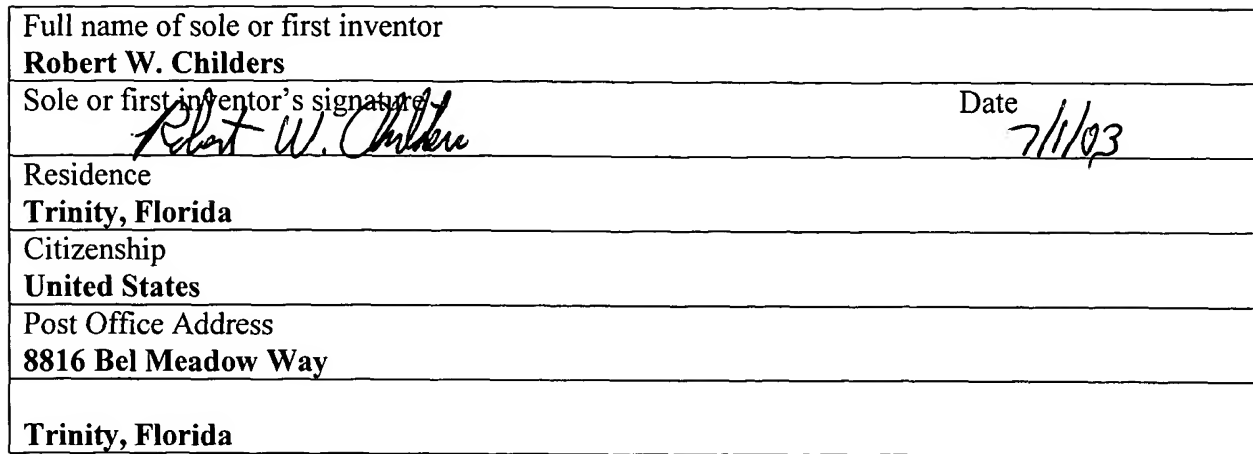 Full name of sole or first inventor
Robert W. Childers
Sole or first inventor's signature Date
Robert W. Childers 7/1/03
Residence
Trinity, Florida
Citizenship
United States
Post Office Address
8816 Bel Meadow Way
Trinity, Florida